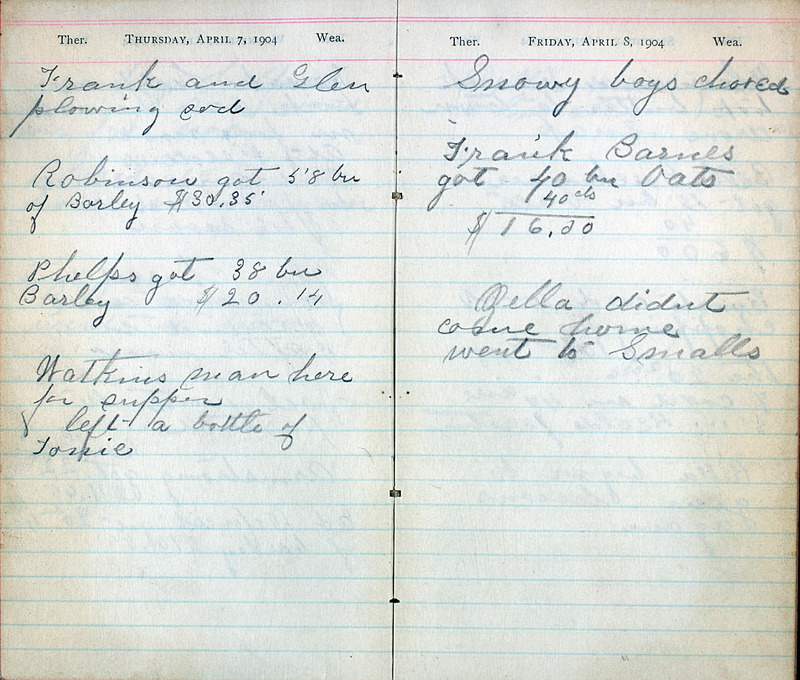 Ther. THURSDAY, APRIL 7, 1904 Wea.
Frank and Glen
plowing sod
Robinson got 58 bu
of Barley $30.35
Phelps got 38 bu
Barley $20.14
Watkins man here
for supper
left a bottle of
Tonic
Ther. FRIDAY, APRIL 8, 1904 Wea.
Snowy boys chored
Frank Barnes
got 40 bu Oats
40cts
$16.00
Zella didnt
come home
went to Smalls